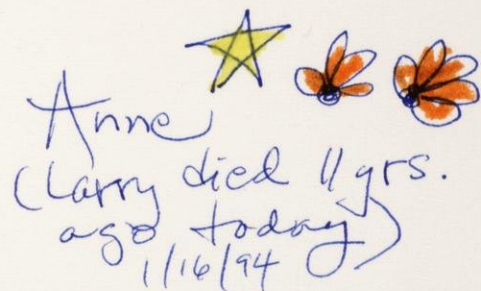 Anne
(Larry died 11 yrs.
ago today)
1/16/94